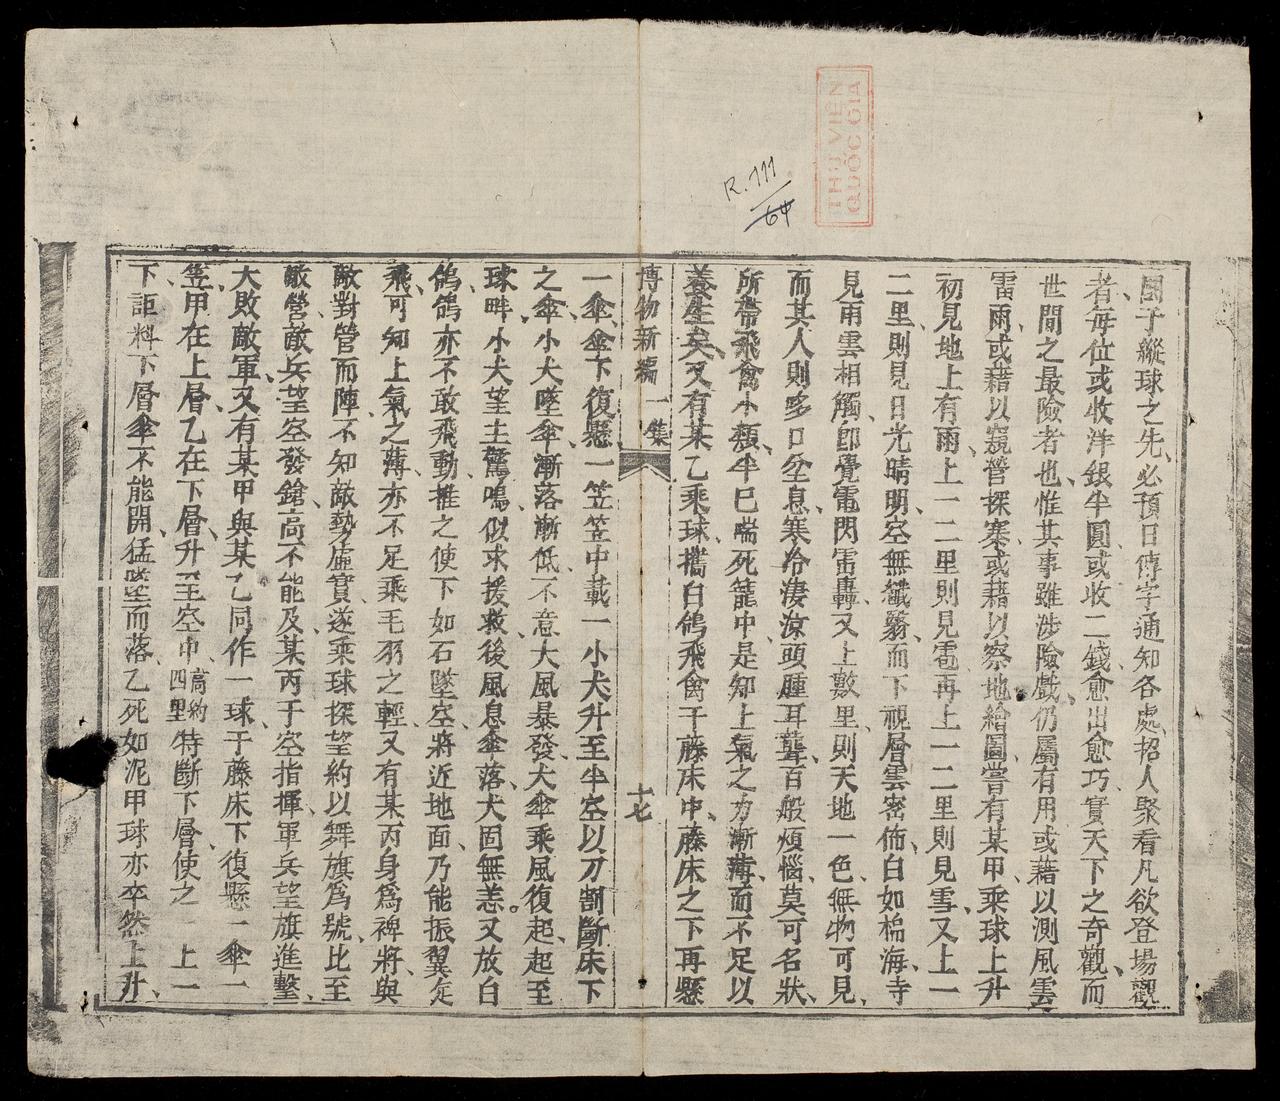 THƯ VIỆN
QUỐC GIA
R.111
64
園子縱球之先、必預日傳字通知各處、招人聚看凡欲登場觀
者、每位或收洋銀半圓、或收二錢愈出愈巧實天下之奇觀、而
世間之最險者也、惟其事雖涉險戲、仍屬有用或藉以測風雲
雷雨、或藉以窺營探寨、或藉以察地繪圖、嘗有某甲、乘球上升
初見地上有雨、上一二里則見雹再上一二里則見雪、又上一
二里、則見日光晴明、空無纖翳、而下視層雲密佈、白如棉海、寺
見雨雲相觸、卽覺電閃雷轟、又上數里、則天地一色、無物可見、
而其人則哆口坌息、寒冷淒涼、頭腫耳聾、百般煩惱、莫可名狀、
所帶飛禽小類、半巳喘死籠中、是知上氣之力漸薄、而不足以
養生矣、又有某乙乘球、攜白鴿飛禽于藤床中、藤床之下再懸
博物新編 一集 十七
一傘、傘下復懸一笠笠中載一小犬升至半空以刀割斷床下
之傘、小犬墜傘漸落漸低、不意大風暴發、大傘乘風復起、起至
球畔、小犬望主驚鳴、似求援救、後風息傘落、犬固無恙。又放白
鴿、鴿亦不敢飛動、推之使下如石墜空、將近地面、乃能振翼定
飛、可知上氣之薄、亦不足乘毛羽之輕、又有某丙身爲裨將、與
敵對營而陣、不知敵勢虛實、遂乘球探望約以舞旗爲號、比至
敵營、敵兵望空發鎗、高不能及、某丙于空指揮、軍兵望旗進擊、
大敗敵軍、又有某甲與某乙同作一球、于藤床下復懸一傘一
笠、甲在上層、乙在下層、升至空中、高約四里特斷下層、使之 上一
下、詎料下層傘不能開、猛墜而落、乙死如泥甲球亦卒然上升、